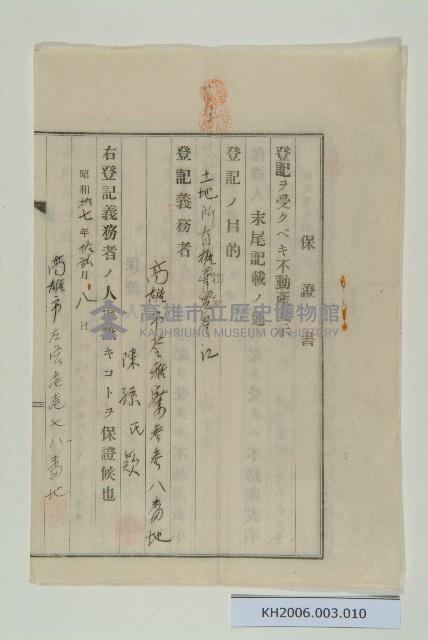 保證書
登記ヲ受クベキ不動產表示
末尾記載ノ通
登記ノ目的
土地所有權
登記義務者
高雄市苓雅寮參參八番地
陳孫氏
右登記義務者ノ人違無キコトヲ保證候也
昭和拾七年拾貳月八日
高雄市左營
七八番地
高雄市立歷史博物館
KAOHSIUNG MUSEUM OF HISTORY
KH2006.003.010